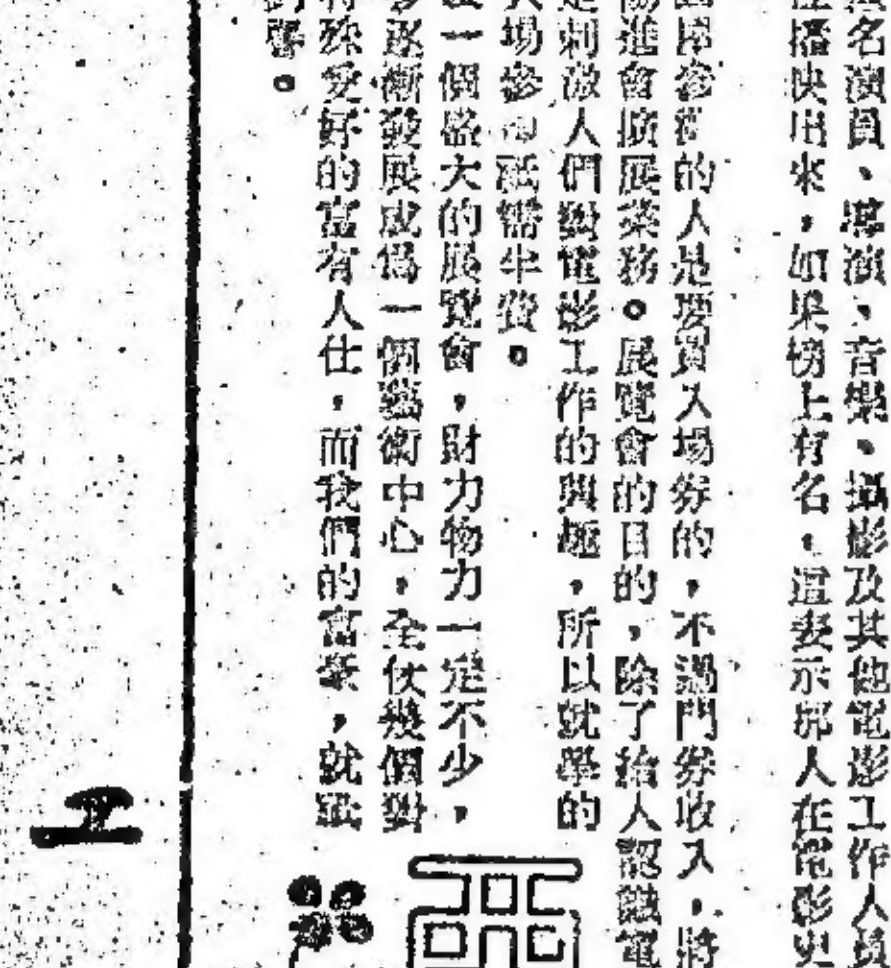 名演員、導演、音樂、攝影及其他電影工作人員
播映出來，如果榜上有名，這表示那人在電影史
的人是要買入場券的，不過門券收入，將
協進會擴展業務。展覽會的目的，除了給人認識電
刺激人們對電影工作的興趣，所以就學的
場參祇需半費。
一個盛大的展覽會，財力物力一定不少，
逐漸發展成為一個藝術中心，全仗幾個對
特殊愛好的富有人仕，而我們的富豪，就
響。